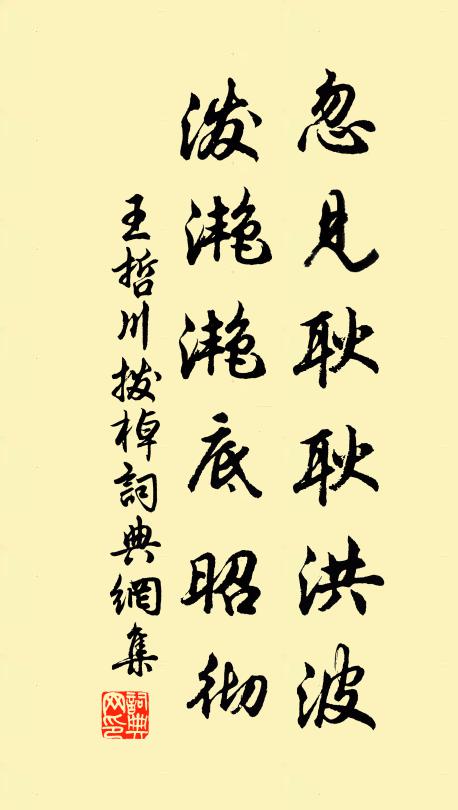 忽見耿耿洪波
泼滟滟底昭彻
王哲川拨棹詞典網集
詞典网印